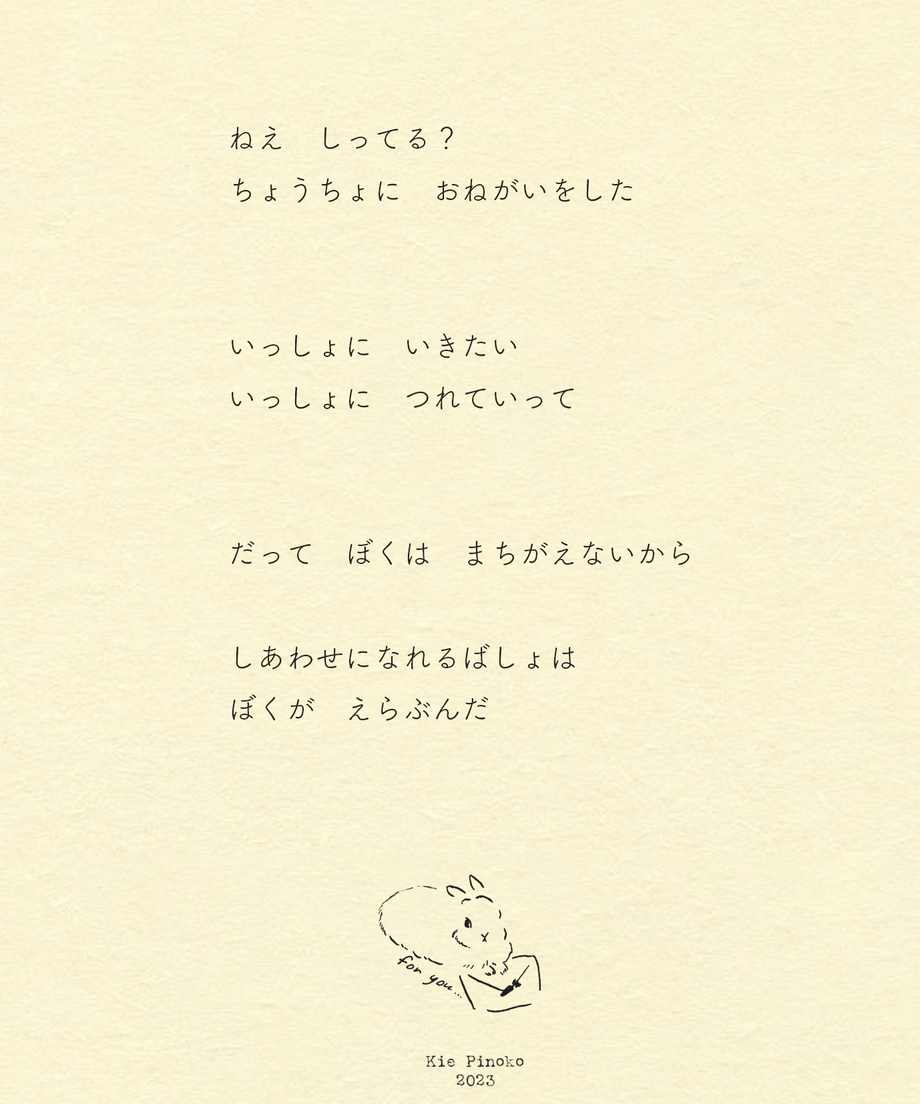 ねえ　しってる？
ちょうちょに　おねがいをした
いっしょに　いきたい
いっしょに　つれていって
だって　ぼくは　まちがえないから
しあわせになれるばしょは
ぼくが　えらぶんだ
for you...
Kie Pinoko
2023